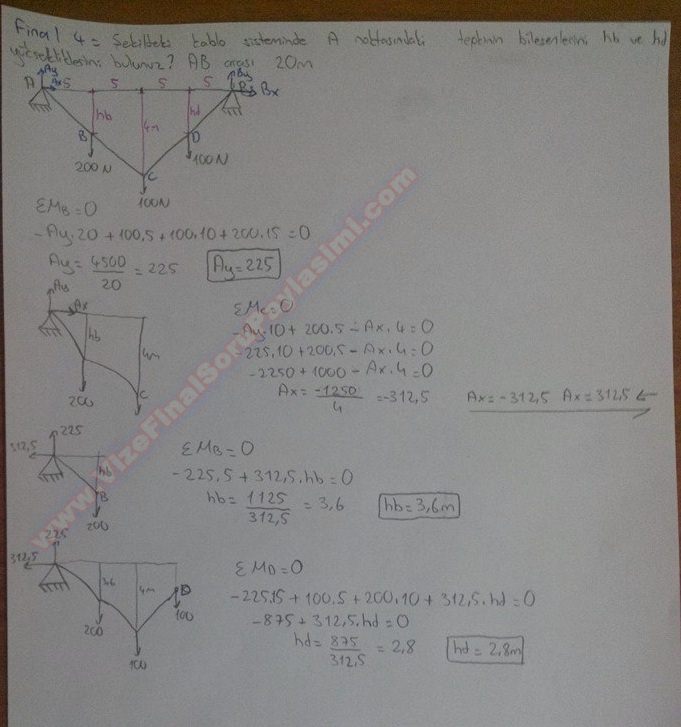 Final 4 = Şekildeki kablo sisteminde A noktasındaki tepkinin bileşenlerini hb ve hd
yüksekliklerini bulunuz? AB arası 20m
Ay By
A Ax 5 5 5 5 B Bx
hb 4m hd
B D
200N C 100N
100N
ΣMB=0
-Ay.20 + 100.5 + 100.10 + 200.15 = 0
Ay = 4500/20 = 225 Ay=225
Ax
hb
4m
200 C
ΣMC=0
-Ay.10 + 200.5 - Ax.4 = 0
-225.10 + 200.5 - Ax.4 = 0
-2250 + 1000 - Ax.4 = 0
Ax = -1250/4 = -312,5 Ax = -312,5 Ax = 312,5 ←
225
312,5
hb
B
200
ΣMB=0
-225.5 + 312,5.hb = 0
hb = 1125/312,5 = 3,6 hb = 3,6m
225
312,5
3,6 4m D
200 100
100
ΣMD=0
-225.15 + 100.5 + 200.10 + 312,5.hd = 0
-875 + 312,5.hd = 0
hd = 875/312,5 = 2,8 hd = 2,8m
www.VizeFinalSoruPaylasimi.com